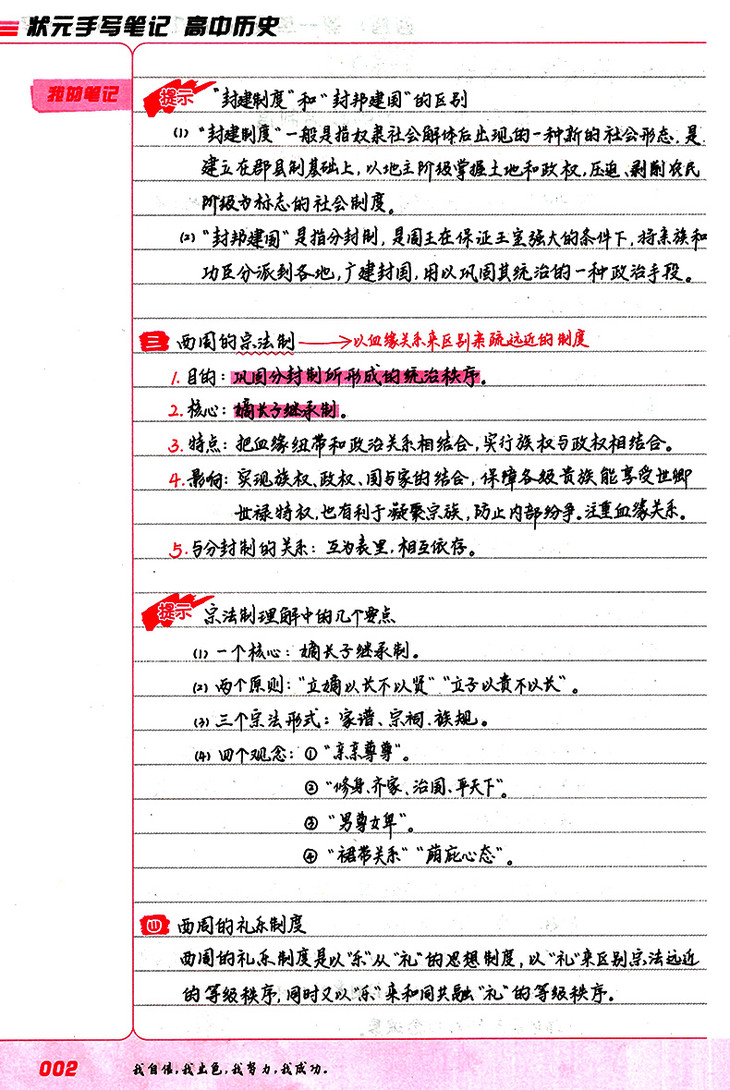 狀元手写笔记 高中历史
我的笔记
提示 “封建制度”和“封邦建国”的区别
(1)“封建制度”一般是指奴隶社会解体后出现的一种新的社会形态,是
建立在郡县制基础上,以地主阶级掌握土地和政权,压迫、剥削农民
阶级为标志的社会制度。
(2)“封邦建国”是指分封制,是周王在保证王室强大的条件下,将亲族和
功臣分派到各地,广建封国,用以巩固其统治的一种政治手段。
三 西周的宗法制→以血缘关系来区别亲疏远近的制度
1.目的:巩固分封制所形成的统治秩序。
2.核心:嫡长子继承制。
3.特点:把血缘纽带和政治关系相结合,实行族权与政权相结合。
4.影响:实现族权、政权、国与家的结合,保障各级贵族能享受世卿
世禄特权,也有利于凝聚宗族,防止内部纷争。注重血缘关系。
5.与分封制的关系:互为表里,相互依存。
提示 宗法制理解中的几个要点
(1)一个核心:嫡长子继承制。
(2)两个原则:“立嫡以长不以贤”“立子以贵不以长”。
(3)三个宗法形式:家谱、宗祠、族规。
(4)四个观念:①“亲亲尊尊”。
②“修身、齐家、治国、平天下”。
③“男尊女卑”。
④“裙带关系”“荫庇心态”。
四 西周的礼乐制度
西周的礼乐制度是以“乐”从“礼”的思想制度,以“礼”来区别宗法远近
的等级秩序,同时又以“乐”来和同共融“礼”的等级秩序。
002
我自信,我出色,我努力,我成功.